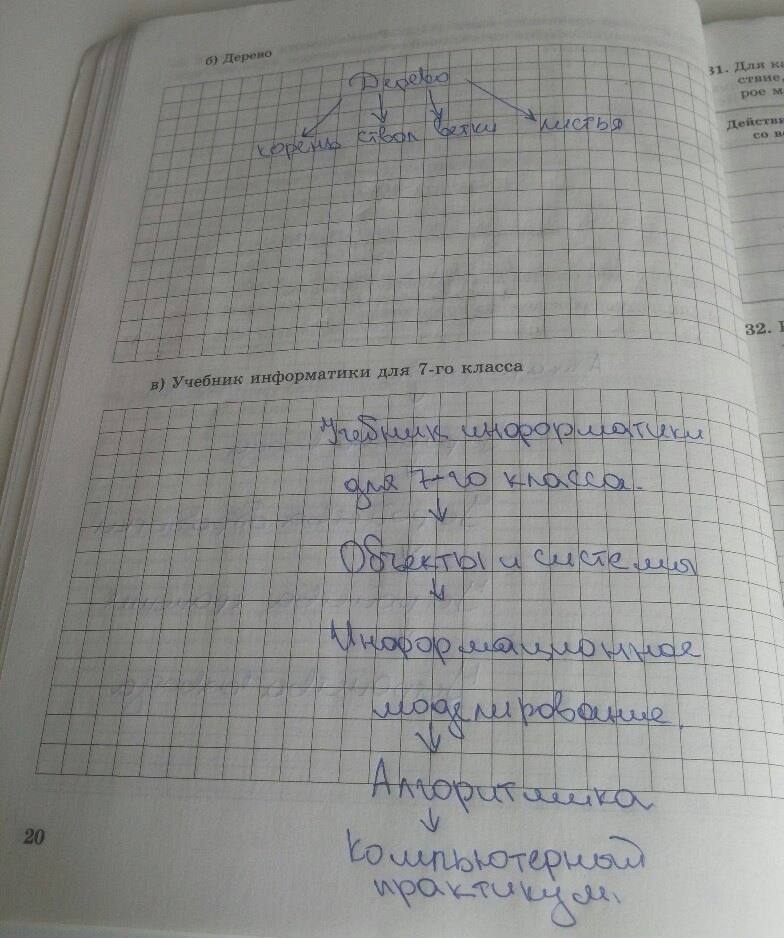 б) Дерево
Дерево
корень ствол ветки листья
в) Учебник информатики для 7-го класса
Учебник информатики
для 7-го класса.
Объекты и системы
Информационное
моделирование
Алгоритмика
Компьютерный
практикум.
20
31. Для
ствие,
рое
со
32.